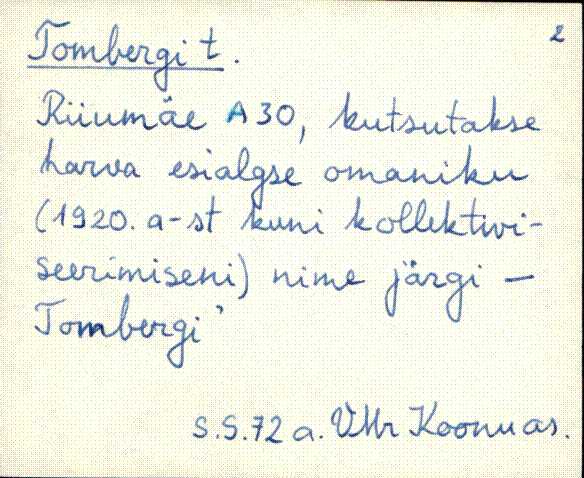 2
Tombergi t.
Riiumäe A30, kutsutakse
harva esialgse omaniku
(1920. a-st kuni kollektivi-
seerimiseni) nime järgi —
Tombergi'
S.S.72 a. VMr Koonu as.